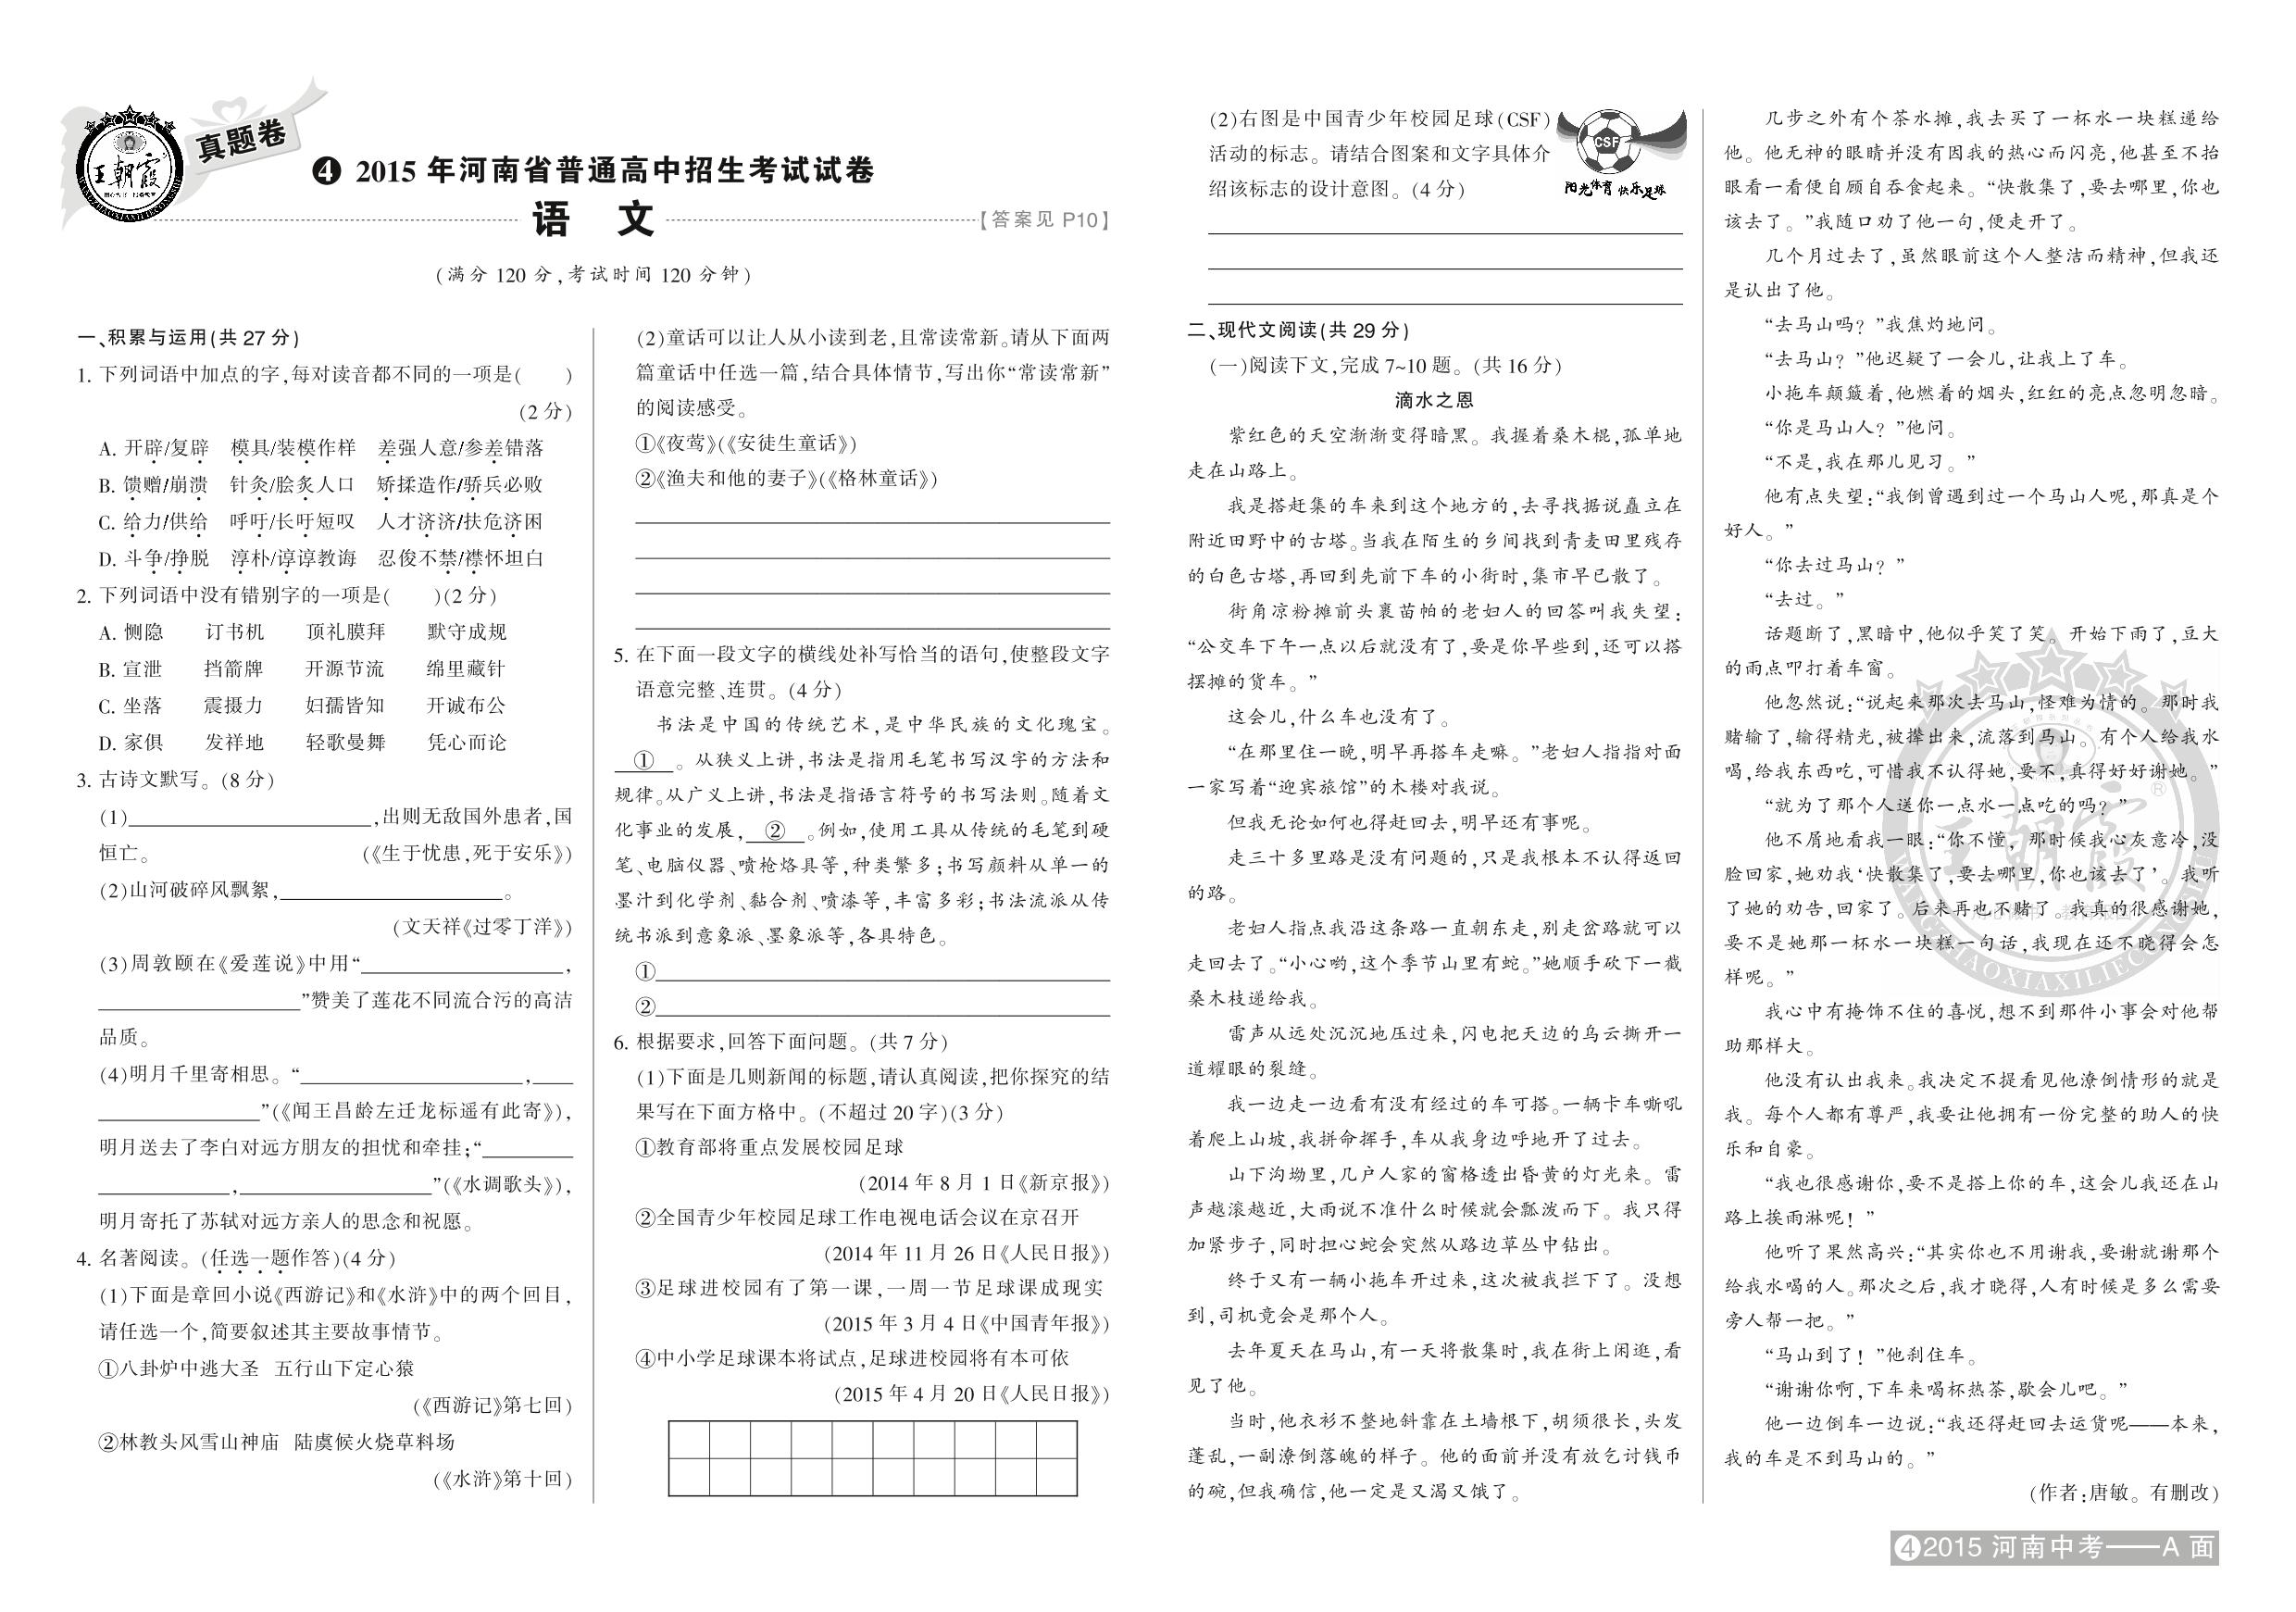 王朝霞
真题卷
❹ 2015 年河南省普通高中招生考试试卷
语 文
【答案见 P10】
(满分 120 分,考试时间 120 分钟)
一、积累与运用(共 27 分)
1. 下列词语中加点的字,每对读音都不同的一项是(　　)
(2 分)
A. 开辟/复辟　模具/装模作样　差强人意/参差错落
B. 馈赠/崩溃　针灸/脍炙人口　矫揉造作/骄兵必败
C. 给力/供给　呼吁/长吁短叹　人才济济/扶危济困
D. 斗争/挣脱　淳朴/谆谆教诲　忍俊不禁/襟怀坦白
2. 下列词语中没有错别字的一项是(　　)(2 分)
A. 恻隐　　订书机　　顶礼膜拜　　默守成规
B. 宣泄　　挡箭牌　　开源节流　　绵里藏针
C. 坐落　　震摄力　　妇孺皆知　　开诚布公
D. 家俱　　发祥地　　轻歌曼舞　　凭心而论
3. 古诗文默写。(8 分)
(1)____________,出则无敌国外患者,国
恒亡。　　(《生于忧患,死于安乐》)
(2)山河破碎风飘絮,____________。
(文天祥《过零丁洋》)
(3)周敦颐在《爱莲说》中用“____________,
____________”赞美了莲花不同流合污的高洁
品质。
(4)明月千里寄相思。“____________,____
____________”(《闻王昌龄左迁龙标遥有此寄》),
明月送去了李白对远方朋友的担忧和牵挂;“______
________,____________”(《水调歌头》),
明月寄托了苏轼对远方亲人的思念和祝愿。
4. 名著阅读。(任选一题作答)(4 分)
(1)下面是章回小说《西游记》和《水浒》中的两个回目,
请任选一个,简要叙述其主要故事情节。
①八卦炉中逃大圣　五行山下定心猿
(《西游记》第七回)
②林教头风雪山神庙　陆虞候火烧草料场
(《水浒》第十回)
(2)童话可以让人从小读到老,且常读常新。请从下面两
篇童话中任选一篇,结合具体情节,写出你“常读常新”
的阅读感受。
①《夜莺》(《安徒生童话》)
②《渔夫和他的妻子》(《格林童话》)
5. 在下面一段文字的横线处补写恰当的语句,使整段文字
语意完整、连贯。(4 分)
书法是中国的传统艺术,是中华民族的文化瑰宝。
　①　。从狭义上讲,书法是指用毛笔书写汉字的方法和
规律。从广义上讲,书法是指语言符号的书写法则。随着文
化事业的发展,　②　。例如,使用工具从传统的毛笔到硬
笔、电脑仪器、喷枪烙具等,种类繁多;书写颜料从单一的
墨汁到化学剂、黏合剂、喷漆等,丰富多彩;书法流派从传
统书派到意象派、墨象派等,各具特色。
①____________
②____________
6. 根据要求,回答下面问题。(共 7 分)
(1)下面是几则新闻的标题,请认真阅读,把你探究的结
果写在下面方格中。(不超过 20 字)(3 分)
①教育部将重点发展校园足球
(2014 年 8 月 1 日《新京报》)
②全国青少年校园足球工作电视电话会议在京召开
(2014 年 11 月 26 日《人民日报》)
③足球进校园有了第一课,一周一节足球课成现实
(2015 年 3 月 4 日《中国青年报》)
④中小学足球课本将试点,足球进校园将有本可依
(2015 年 4 月 20 日《人民日报》)
(2)右图是中国青少年校园足球(CSF)
活动的标志。请结合图案和文字具体介
绍该标志的设计意图。(4 分)
CSF
阳光体育 快乐足球
二、现代文阅读(共 29 分)
(一)阅读下文,完成 7~10 题。(共 16 分)
滴水之恩
紫红色的天空渐渐变得暗黑。我握着桑木棍,孤单地
走在山路上。
我是搭赶集的车来到这个地方的,去寻找据说矗立在
附近田野中的古塔。当我在陌生的乡间找到青麦田里残存
的白色古塔,再回到先前下车的小街时,集市早已散了。
街角凉粉摊前头裹苗帕的老妇人的回答叫我失望:
“公交车下午一点以后就没有了,要是你早些到,还可以搭
摆摊的货车。”
这会儿,什么车也没有了。
“在那里住一晚,明早再搭车走嘛。”老妇人指指对面
一家写着“迎宾旅馆”的木楼对我说。
但我无论如何也得赶回去,明早还有事呢。
走三十多里路是没有问题的,只是我根本不认得返回
的路。
老妇人指点我沿这条路一直朝东走,别走岔路就可以
走回去了。“小心哟,这个季节山里有蛇。”她顺手砍下一截
桑木枝递给我。
雷声从远处沉沉地压过来,闪电把天边的乌云撕开一
道耀眼的裂缝。
我一边走一边看有没有经过的车可搭。一辆卡车嘶吼
着爬上山坡,我拼命挥手,车从我身边呼地开了过去。
山下沟坳里,几户人家的窗格透出昏黄的灯光来。雷
声越滚越近,大雨说不准什么时候就会瓢泼而下。我只得
加紧步子,同时担心蛇会突然从路边草丛中钻出。
终于又有一辆小拖车开过来,这次被我拦下了。没想
到,司机竞会是那个人。
去年夏天在马山,有一天将散集时,我在街上闲逛,看
见了他。
当时,他衣衫不整地斜靠在土墙根下,胡须很长,头发
蓬乱,一副潦倒落魄的样子。他的面前并没有放乞讨钱币
的碗,但我确信,他一定是又渴又饿了。
几步之外有个茶水摊,我去买了一杯水一块糕递给
他。他无神的眼睛并没有因我的热心而闪亮,他甚至不抬
眼看一看便自顾自吞食起来。“快散集了,要去哪里,你也
该去了。”我随口劝了他一句,便走开了。
几个月过去了,虽然眼前这个人整洁而精神,但我还
是认出了他。
“去马山吗？”我焦灼地问。
“去马山？”他迟疑了一会儿,让我上了车。
小拖车颠簸着,他燃着的烟头,红红的亮点忽明忽暗。
“你是马山人？”他问。
“不是,我在那儿见习。”
他有点失望:“我倒曾遇到过一个马山人呢,那真是个
好人。”
“你去过马山？”
“去过。”
话题断了,黑暗中,他似乎笑了笑。开始下雨了,豆大
的雨点叩打着车窗。
他忽然说:“说起来那次去马山,怪难为情的。那时我
赌输了,输得精光,被撵出来,流落到马山。有个人给我水
喝,给我东西吃,可惜我不认得她,要不,真得好好谢她。”
“就为了那个人送你一点水一点吃的吗？”
他不屑地看我一眼:“你不懂,那时候我心灰意冷,没
脸回家,她劝我‘快散集了,要去哪里,你也该去了’。我听
了她的劝告,回家了。后来再也不赌了。我真的很感谢她,
要不是她那一杯水一块糕一句话,我现在还不晓得会怎
样呢。”
我心中有掩饰不住的喜悦,想不到那件小事会对他帮
助那样大。
他没有认出我来。我决定不提看见他潦倒情形的就是
我。每个人都有尊严,我要让他拥有一份完整的助人的快
乐和自豪。
“我也很感谢你,要不是搭上你的车,这会儿我还在山
路上挨雨淋呢！”
他听了果然高兴:“其实你也不用谢我,要谢就谢那个
给我水喝的人。那次之后,我才晓得,人有时候是多么需要
旁人帮一把。”
“马山到了！”他刹住车。
“谢谢你啊,下车来喝杯热茶,歇会儿吧。”
他一边倒车一边说:“我还得赶回去运货呢——本来,
我的车是不到马山的。”
(作者:唐敏。有删改)
❹2015 河南中考——A 面